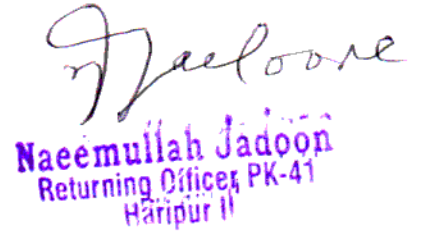 Naeemullah Jadoon
Returning Officer PK-41
Haripur II